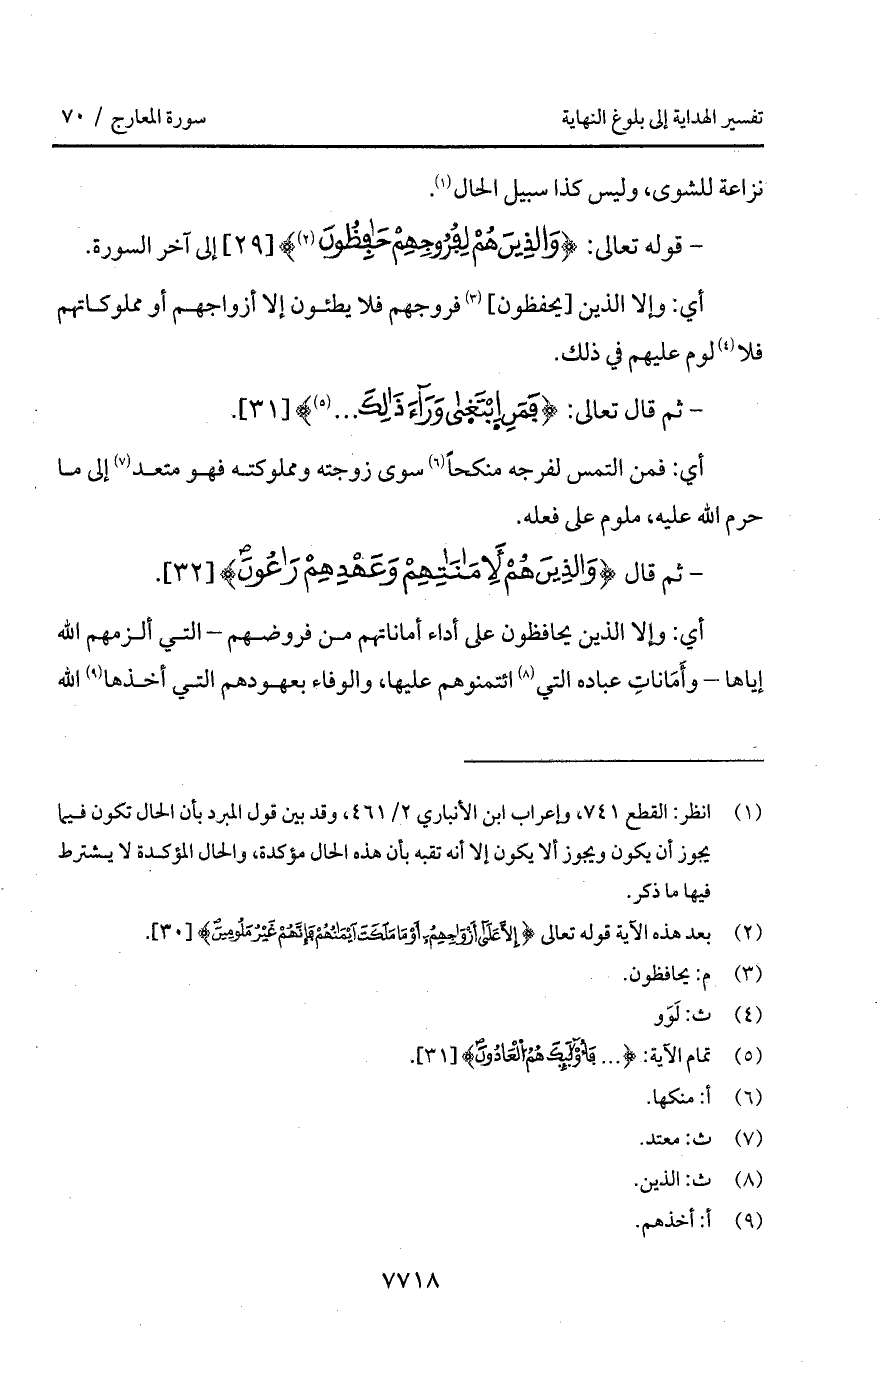 تفسير الهداية إلى بلوغ النهاية سورة المعارج / ٧٠
نزاعة للشوى، وليس كذا سبيل الحال(١).
– قوله تعالى: ﴿وَالذِينَ هُمْ لِفُرُوجِهِمْ حَٰفِظُونَ(٢)﴾ [٢٩] إلى آخر السورة.
أي: وإلا الذين [يحفظون](٣) فروجهم فلا يطئون إلا أزواجهم أو مملوكاتهم
فلا(٤) لوم عليهم في ذلك.
– ثم قال تعالى: ﴿فَمَنِ اِبْتَغِىٰ وَرَآءَ ذَٰلِكَ...(٥)﴾ [٣١].
أي: فمن التمس لفرجه منكحاً(٦) سوى زوجته ومملوكته فهو متعد(٧) إلى ما
حرم الله عليه، ملوم على فعله.
– ثم قال ﴿وَالذِينَ هُمْ لَأِمَٰنَٰتِهِمْ وَعَهْدِهِمْ رَٰعُونَ﴾ [٣٢].
أي: وإلا الذين يحافظون على أداء أماناتهم من فروضهم – التي ألزمهم الله
إياها – وأَمَاناتِ عباده التي(٨) ائتمنوهم عليها، والوفاء بعهودهم التي أخذها(٩) الله
(١) انظر: القطع ٧٤١، وإعراب ابن الأنباري ٢/ ٤٦١، وقد بين قول المبرد بأن الحال تكون فيما
يجوز أن يكون ويجوز ألا يكون إلا أنه تقبه بأن هذه الحال مؤكدة، والحال المؤكدة لا يشترط
فيها ما ذكر.
(٢) بعد هذه الآية قوله تعالى ﴿إِلاَّ عَلَىٰٓ أَزْوَٰجِهِمُۥٓ أَوْ مَا مَلَكَتَ اَيْمَٰنُهُمْ فَإِنَّهُمْ غَيْرُ مَلُومِينَ﴾ [٣٠].
(٣) م: يحافظون.
(٤) ث: لَوَو
(٥) تمام الآية: ﴿... فَأُوْلَٰٓئِكَ هُمُ اُلْعَادُونَ﴾ [٣١].
(٦) أ: منكها.
(٧) ث: معتد.
(٨) ث: الذين.
(٩) أ: أخذهم.
٧٧١٨